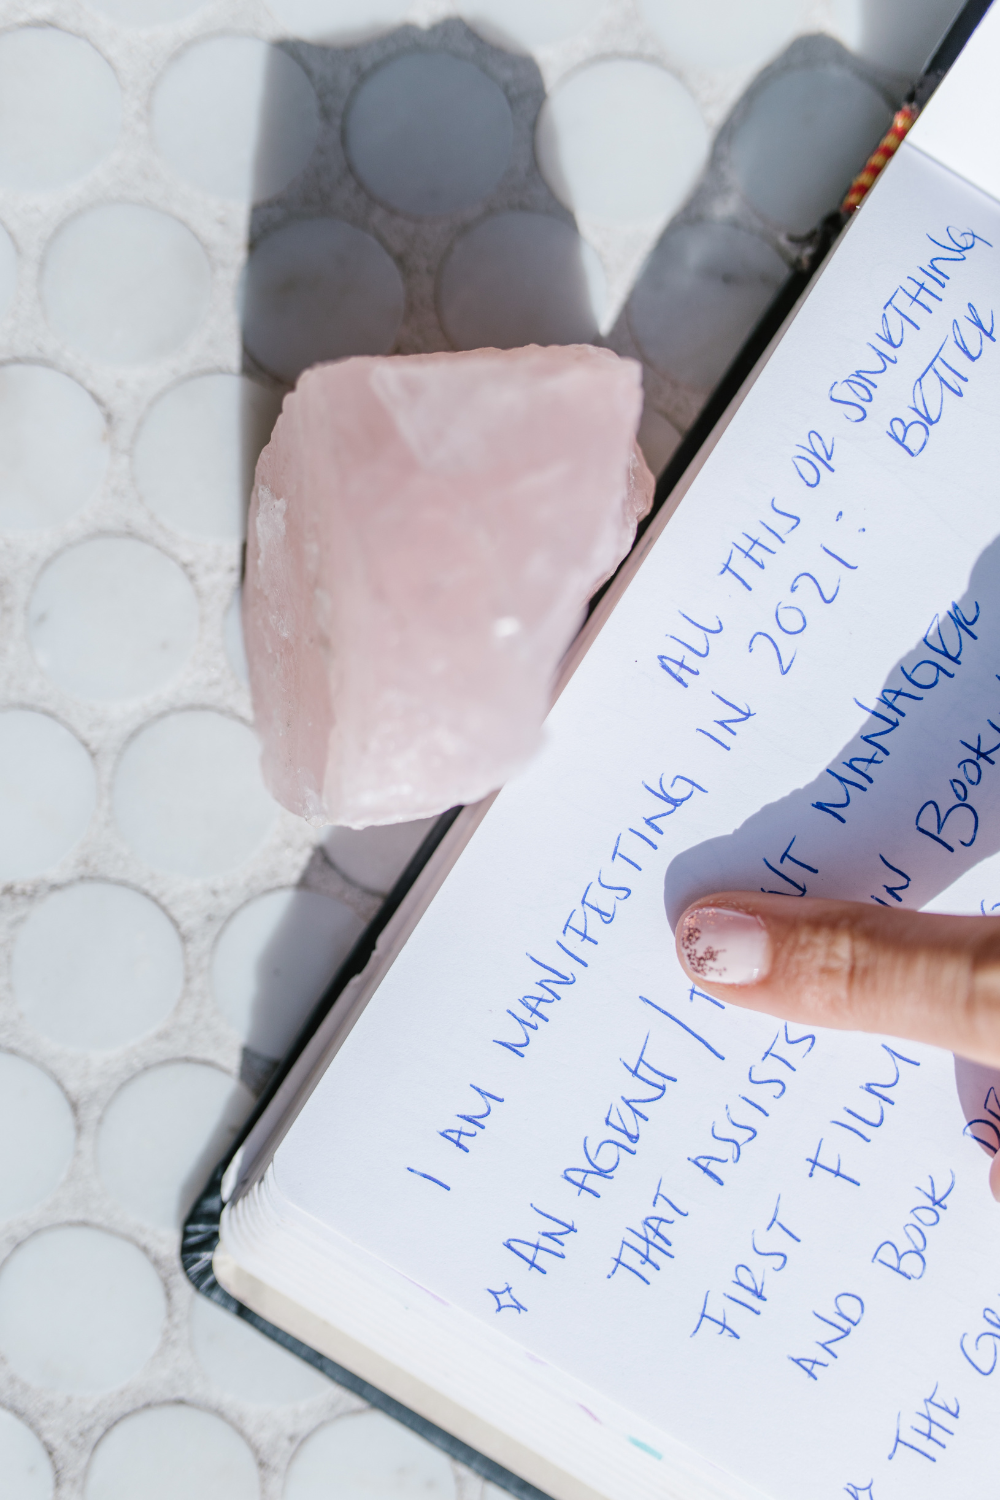 I AM MANIFESTING ALL THIS OR SOMETHING
BETTER
IN 2021:
AN AGENT / MANAGER
THAT ASSISTS IN BOOK
FIRST FILM
AND BOOK
THE